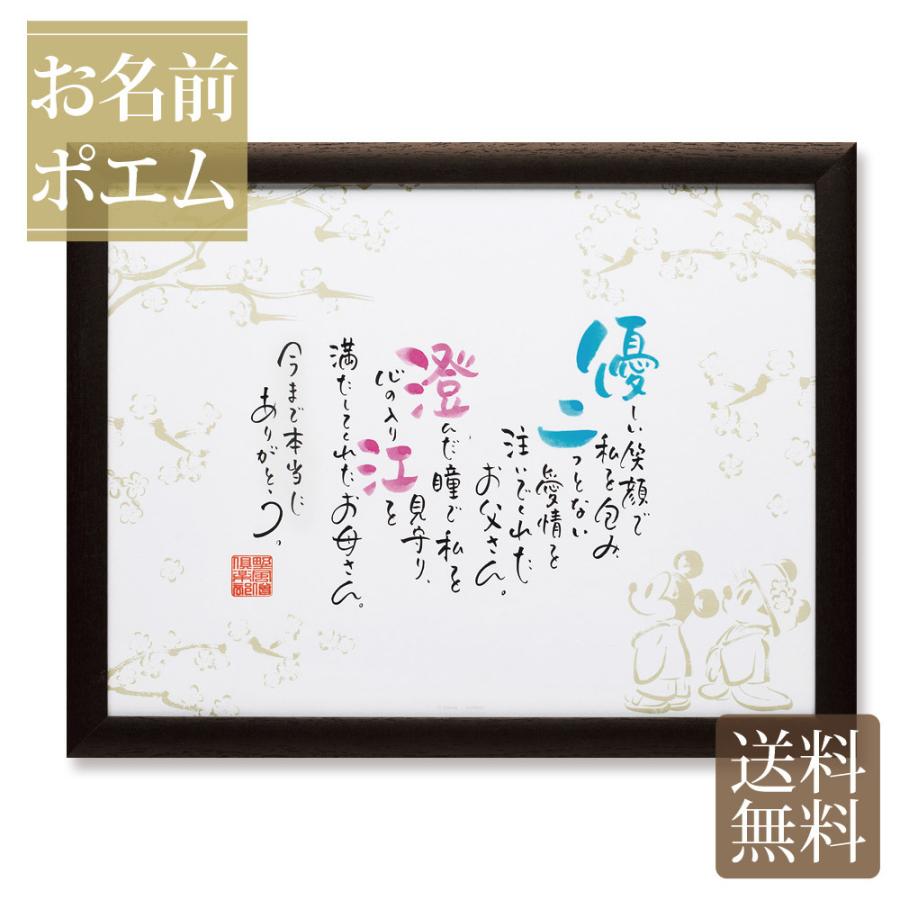 お名前
ポエム
優しい笑顔で
私を包み、
二つとない
愛情を
注いでくれた
お父さん。
澄んだ瞳で私を
見守り、
心の入り江を
満たしてくれたお母さん。
今まで本当に
ありがとう。
送料
無料